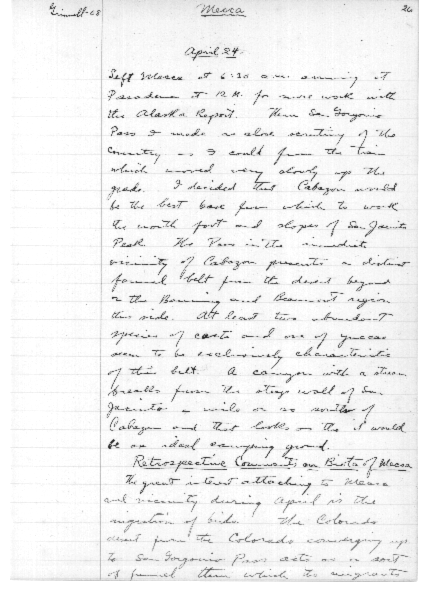 Grinnell-08
Mecca
26
April 24.
Left Mecca at 6:30 a.m. arriving at
Pasadena at 12 M. for more work with
the Alaska Report. Thru San Gorgonio
Pass I made as close scrutiny of the
country as I could from the train
which moved very slowly up the
grade. I decided that Cabazon would
be the best base from which to work
the north foot and slopes of San Jacinto
Peak. The Pass in the immediate
vicinity of Cabazon presents a distinct
faunal belt from the desert beyond
or the Banning and Beaumont region
this side. At least two abundant
species of cacti and one of yuccas
seem to be exclusively characteristic
of this belt. A canyon with a stream
breaks from the steep wall of San
Jacinto a mile or so south of
Cabazon and that looks as tho it would
be an ideal camping ground.
Retrospective Comments on Biota of Mecca
The great interest attaching to Mecca
and vicinity during April is the
migration of birds. The Colorado
desert from the Colorado converging up
to San Gorgonio Pass acts as a sort
of funnel thru which the migrants